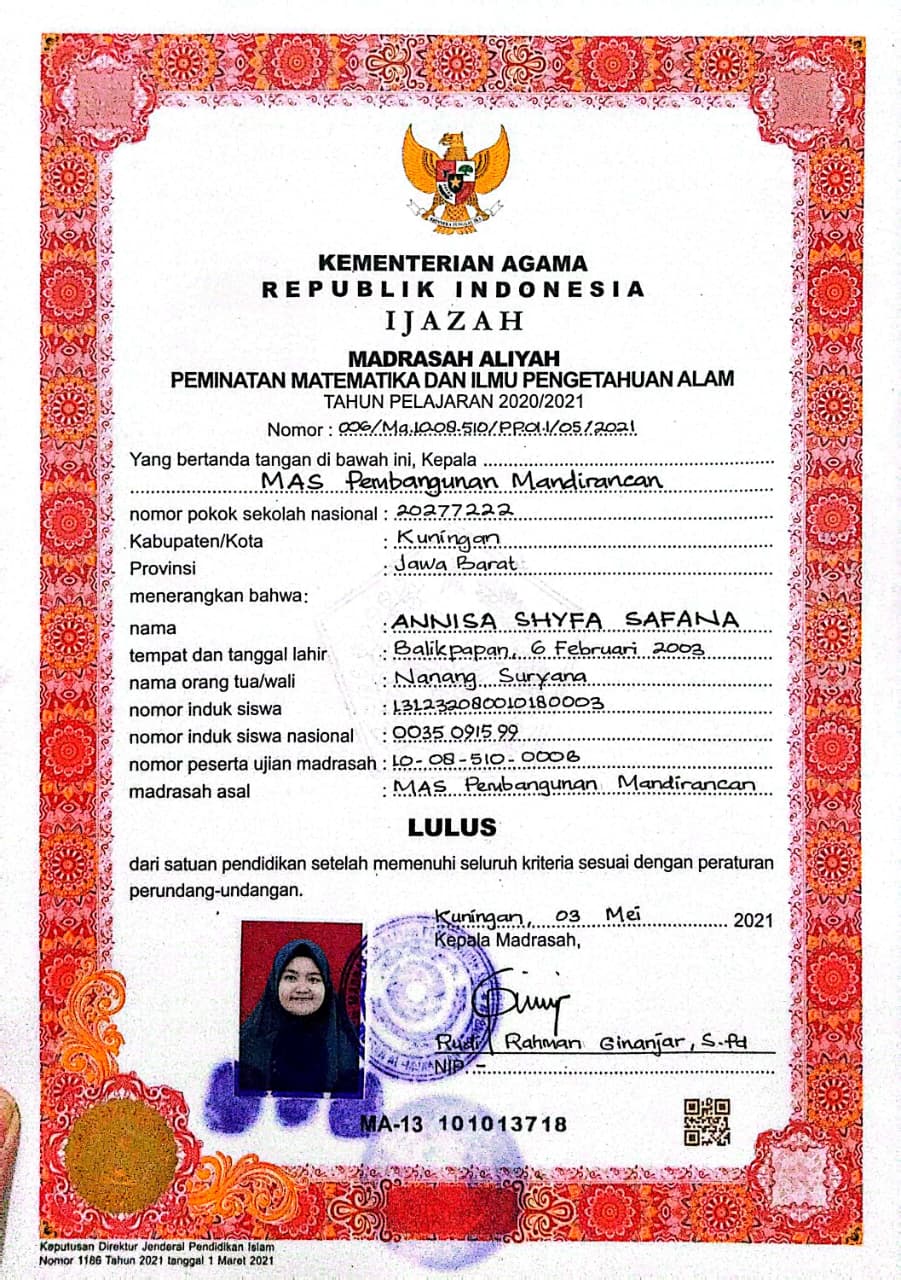 KEMENTERIAN AGAMA
REPUBLIK INDONESIA
IJAZAH
MADRASAH ALIYAH
PEMINATAN MATEMATIKA DAN ILMU PENGETAHUAN ALAM
TAHUN PELAJARAN 2020/2021
Nomor : 006/Ma.10.08.510/PP.01.1/05/2021
Yang bertanda tangan di bawah ini, Kepala
MAS Pembangunan Mandirancan
nomor pokok sekolah nasional : 20277222
Kabupaten/Kota : Kuningan
Provinsi : Jawa Barat
menerangkan bahwa:
nama : ANNISA SHYFA SAFANA
tempat dan tanggal lahir : Balikpapan, 6 Februari 2003
nama orang tua/wali : Nanang Suryana
nomor induk siswa : 131232080010180003
nomor induk siswa nasional : 0035 0915 99
nomor peserta ujian madrasah : 10-08-510-0006
madrasah asal : MAS Pembangunan Mandirancan
LULUS
dari satuan pendidikan setelah memenuhi seluruh kriteria sesuai dengan peraturan
perundang-undangan.
Kuningan, 03 Mei 2021
Kepala Madrasah,
Rudi Rahman Ginanjar, S.Pd
NIP. -
MA-13 101013718
Keputusan Direktur Jenderal Pendidikan Islam
Nomor 1186 Tahun 2021 tanggal 1 Maret 2021